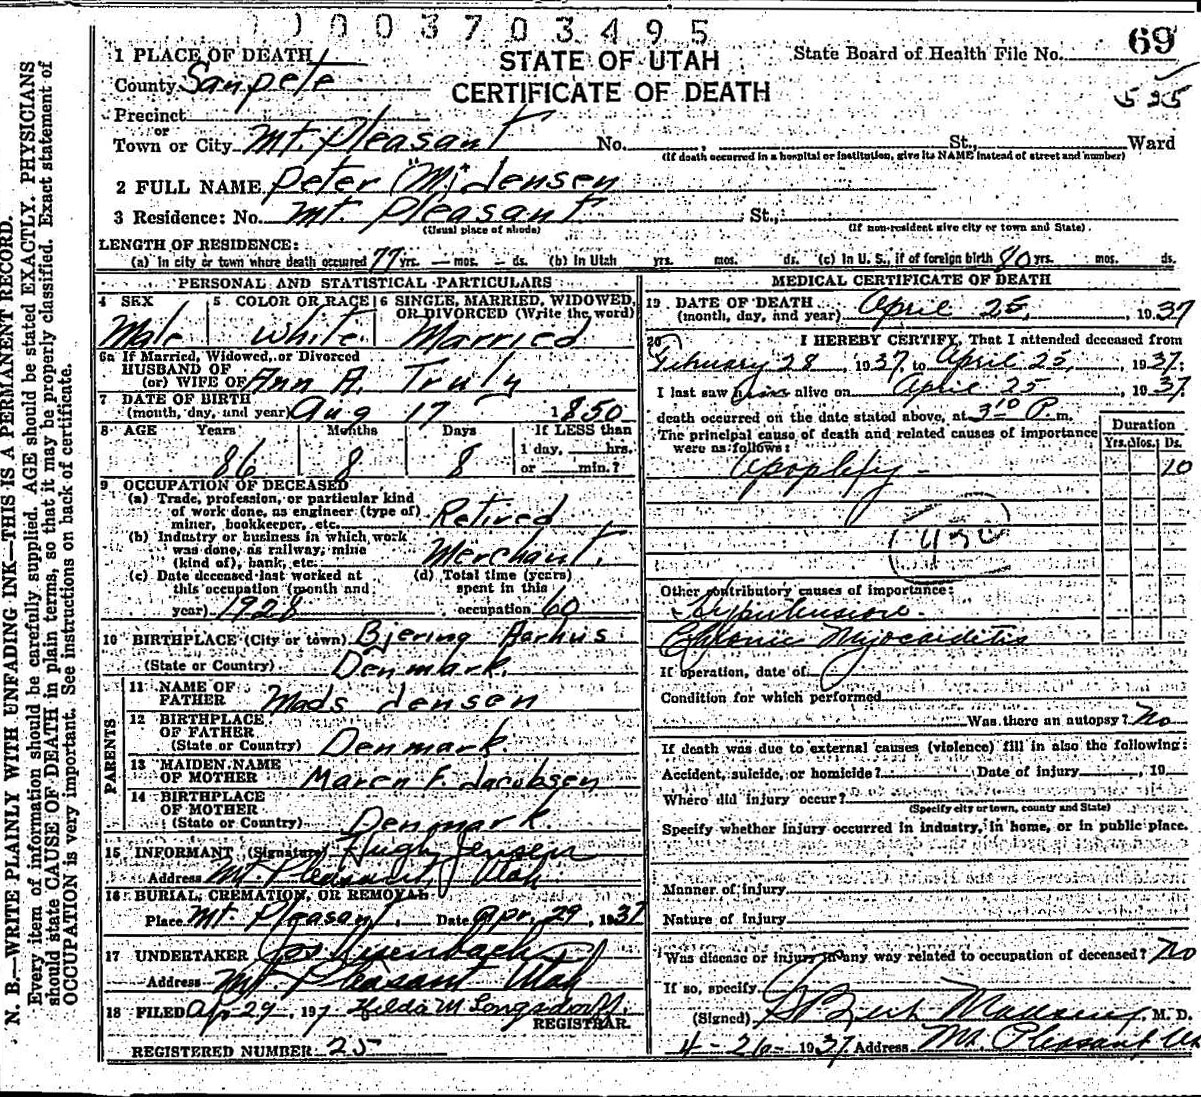 1003703495
69
STATE OF UTAH
CERTIFICATE OF DEATH
State Board of Health File No.
525
1 PLACE OF DEATH
County Sanpete
Precinct
or
Town or City Mt. Pleasant No. , St., Ward
(If death occurred in a hospital or institution, give its NAME instead of street and number)
2 FULL NAME Peter "M" Jensen
3 Residence: No. Mt. Pleasant St.,
(Usual place of abode) (If non-resident give city or town and State).
LENGTH OF RESIDENCE:
(a) In city or town where death occurred 77 yrs. — mos. — ds. (b) In Utah yrs. mos. ds. (c) In U. S., if of foreign birth 80 yrs. mos. ds.
PERSONAL AND STATISTICAL PARTICULARS
4 SEX 5 COLOR OR RACE 6 SINGLE, MARRIED, WIDOWED, OR DIVORCED (Write the word)
Male White Married
6a If Married, Widowed, or Divorced
HUSBAND OF
(or) WIFE OF Ann A. Truly
7 DATE OF BIRTH
(month, day, and year) Aug 17 1850
8 AGE Years Months Days If LESS than
1 day, hrs.
86 8 8 or min.?
9 OCCUPATION OF DECEASED
(a) Trade, profession, or particular kind
of work done, as engineer (type of)
miner, bookkeeper, etc. Retired
(b) Industry or business in which work
was done, as railway, mine
(kind of), bank, etc. Merchant.
(c) Date deceased last worked at (d) Total time (years)
this occupation (month and spent in this
year) 1928 occupation 60
10 BIRTHPLACE (City or town) Bjering Aarhus
(State or Country) Denmark.
PARENTS
11 NAME OF
FATHER Mads Jensen
12 BIRTHPLACE
OF FATHER
(State or Country) Denmark.
13 MAIDEN NAME
OF MOTHER Maren F. Jacobsen
14 BIRTHPLACE
OF MOTHER
(State or Country) Denmark.
15 INFORMANT (Signature) Hugh Jensen
Address Mt. Pleasant Utah
16 BURIAL, CREMATION, OR REMOVAL
Place Mt. Pleasant. Date Apr. 29, 1937
17 UNDERTAKER
Address Mt. Pleasant Utah
18 FILED Apr 29, 197 Hilda M Longsdorff.
REGISTRAR.
REGISTERED NUMBER 25
MEDICAL CERTIFICATE OF DEATH
19 DATE OF DEATH
(month, day, and year) April 25, 1937
20 I HEREBY CERTIFY, That I attended deceased from
February 28, 1937. to April 25, 1937.;
I last saw him alive on April 25, 1937.
death occurred on the date stated above, at 3 10 P. m.
The principal cause of death and related causes of importance
were as follows:
Duration
Yrs. Mos. Ds.
Apoplexy — 10
Other contributory causes of importance:
Hypertension.
Chronic Myocarditis
If operation, date of
Condition for which performed
Was there an autopsy? No
If death was due to external causes (violence) fill in also the following:
Accident, suicide, or homicide? Date of injury , 19
Where did injury occur?
(Specify city or town, county and State)
Specify whether injury occurred in industry, in home, or in public place.
Manner of injury
Nature of injury
Was disease or injury in any way related to occupation of deceased? No
If so, specify
(Signed) Bert Madsen, M. D.
4-26-1937. Address Mt. Pleasant Ut
N. B.—WRITE PLAINLY WITH UNFADING INK—THIS IS A PERMANENT RECORD.
Every item of information should be carefully supplied. AGE should be stated EXACTLY. PHYSICIANS
should state CAUSE OF DEATH in plain terms, so that it may be properly classified. Exact statement of
OCCUPATION is very important. See instructions on back of certificate.